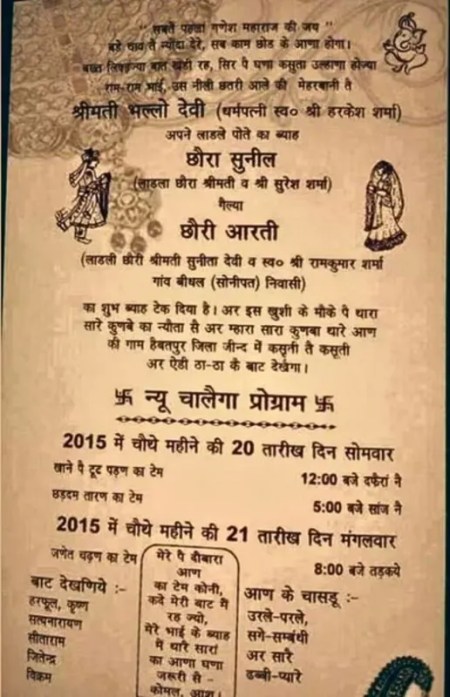 " सबतै पहल्यां गणेश महाराज की जय "
बड़े चाव तै न्यौदा देरे, सब काम छोड के आणा होगा।
बख्त लिकड़ज्या बात खड़ी रह, सिर पै घणा कसुता उल्हाणा होज्या
राम-राम भाई, उस नीली छतरी आले की मेहरबानी तै
श्रीमती भल्लो देवी (धर्मपत्नी स्व० श्री हरकेश शर्मा)
अपने लाडले पोते का ब्याह
छौरा सुनील
(लाडला छौरा श्रीमती व श्री सुरेश शर्मा)
गैल्या
छौरी आरती
(लाडली छौरी श्रीमती सुनीता देवी व स्व० श्री रामकुमार शर्मा
गांव बीधल (सोनीपत) निवासी)
का शुभ ब्याह टेक दिया है। अर इस खुशी के मौके पै थारा
सारे कुणबे का न्यौता सै अर म्हारा सारा कुणबा थारे आण
की गाम हैबतपुर जिला जीन्द में कसुत्ती तै कसूती
अर ऐडी ठा-ठा कै बाट देखेगा।
卐 न्यू चालैगा प्रोग्राम 卐
2015 में चौथे महीने की 20 तारीख दिन सोमवार
खाने पै टूट पड़ण का टेम 12:00 बजे दफैरां नै
छड़दम तारण का टेम 5:00 बजे सांज नै
2015 में चौथे महीने की 21 तारीख दिन मंगलवार
जणेत चढ़ण का टेम 8:00 बजे तड़कये
बाट देखणिये :-
हरफूल, कृष्ण
सत्यनारायण
सीताराम
जितेन्द्र
विक्रम
मेरे पै दौबारा
आण
का टेम कोनी,
कदे मेरी बाट मैं
रह ज्यो,
मेरे भाई के ब्याह
में थारै सारां
का आणा घणा
जरूरी सै -
कोमल, आशु
आण के चासडू :-
उरले-परले,
सगे-सम्बंधी
अर सारै
ढब्बी-प्यारे